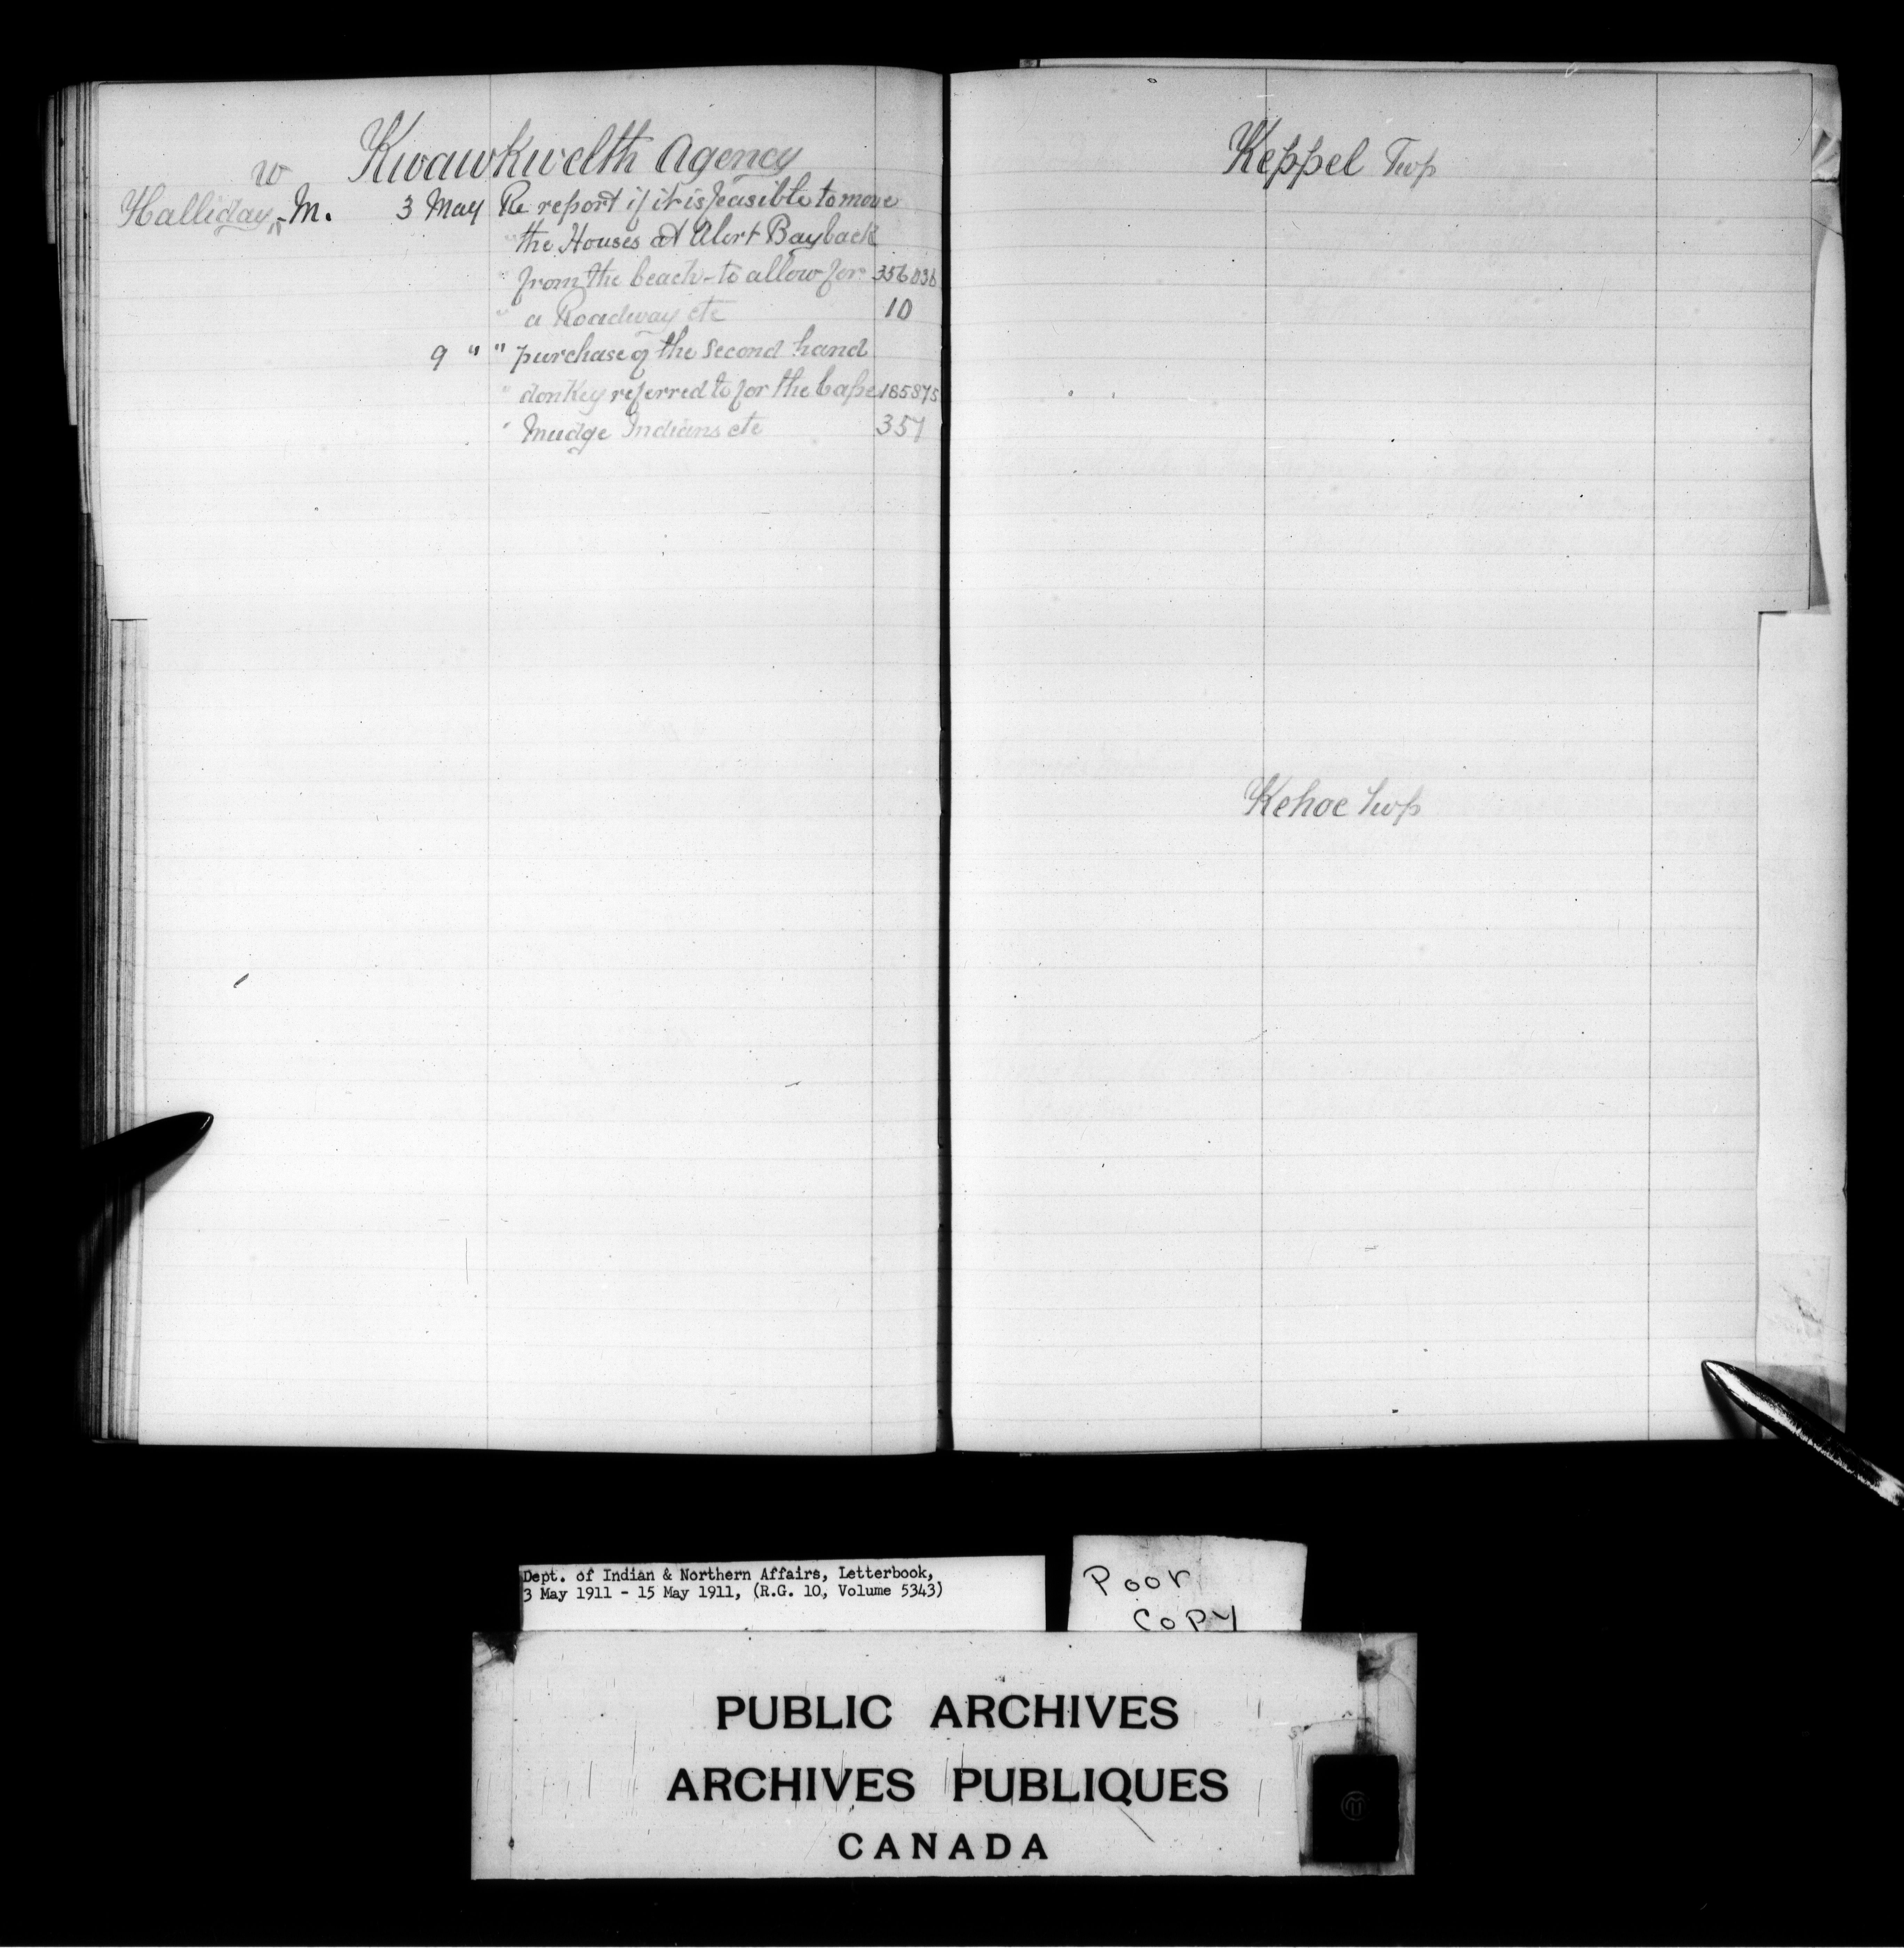 Kwawkwelth Agency
Halliday, W M. 3 May Re report if it is feasible to move
" the Houses at Alert Bay back
" from the beach - to allow for 356036
" a Roadway etc 10
9 " " purchase of the second hand
" donkey referred to for the Cape 185875
" Mudge Indians etc 357
Keppel Twp
Kehoe Twp
Dept. of Indian & Northern Affairs, Letterbook,
3 May 1911 - 15 May 1911, (R.G. 10, Volume 5343)
Poor
Copy
PUBLIC ARCHIVES
ARCHIVES PUBLIQUES
CANADA